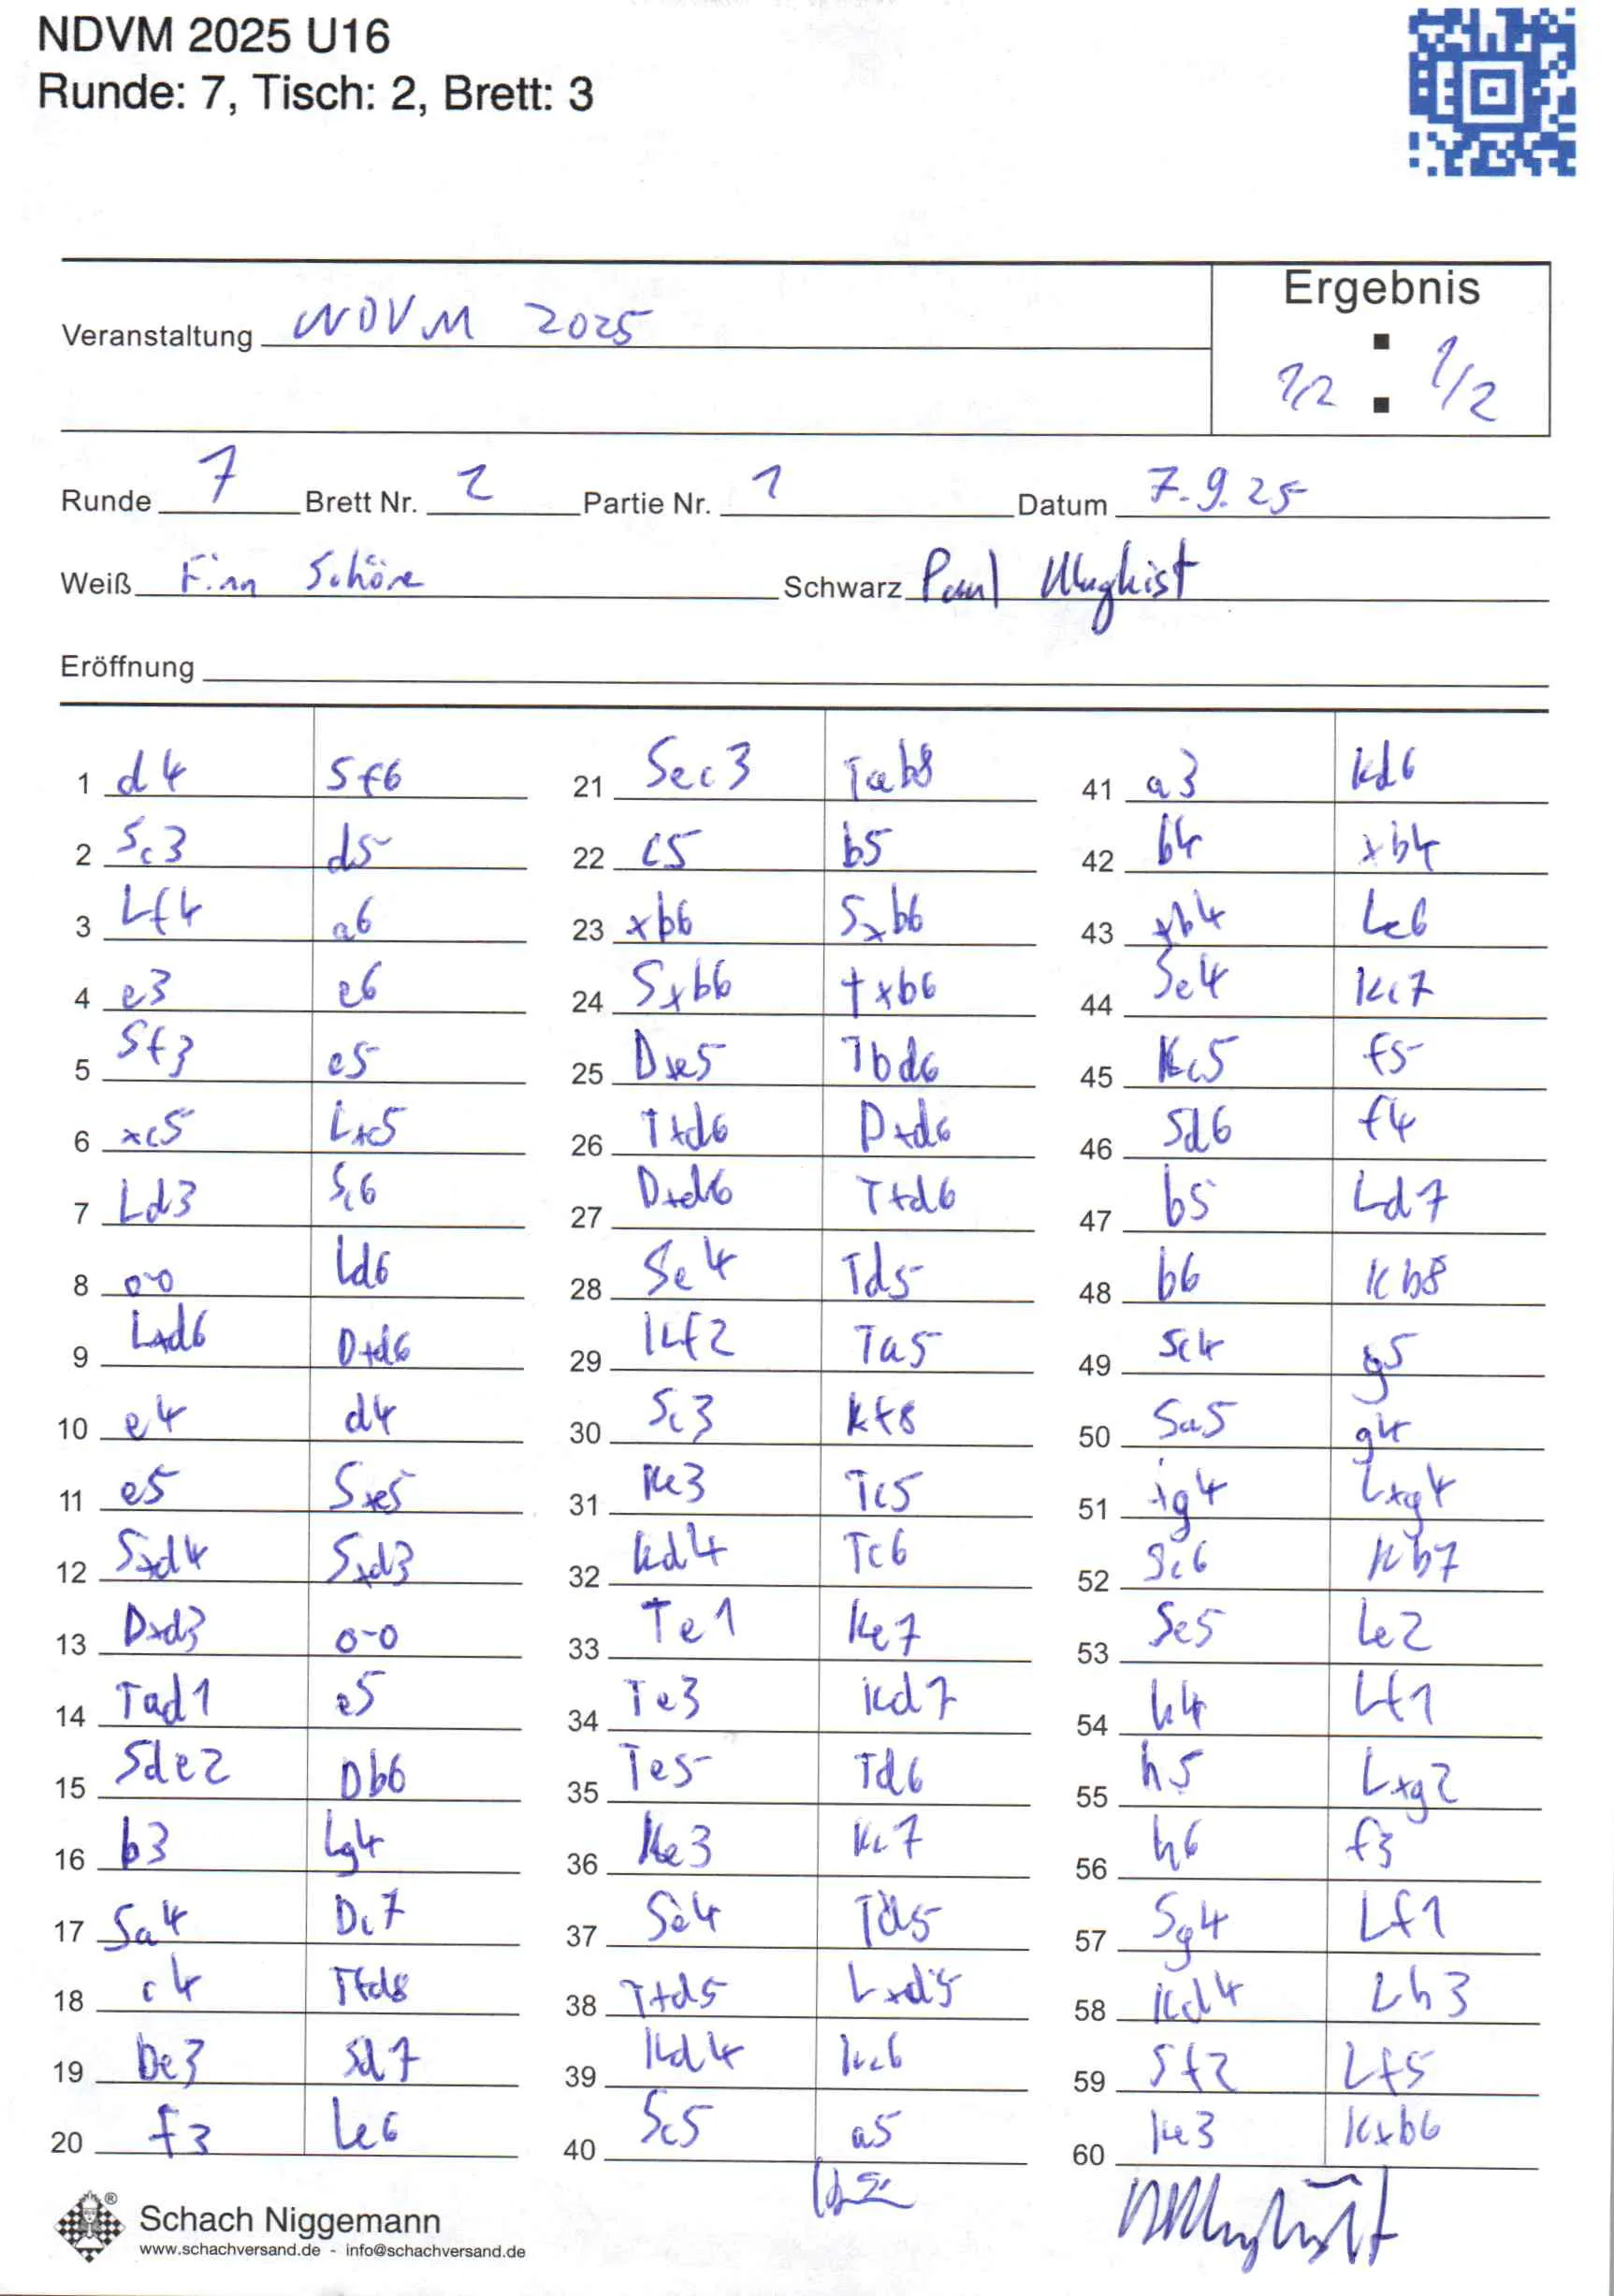 NDVM 2025 U16
Runde: 7, Tisch: 2, Brett: 3
Ergebnis
Veranstaltung NDVM 2025
1/2 : 1/2
Runde 7 Brett Nr. 2 Partie Nr. 1 Datum 7.9.25
Weiß Finn Schöne Schwarz Paul
Eröffnung
1 d4 Sf6 21 Sec3 Tab8 41 a3 Kd6
2 Sc3 d5 22 c5 b5 42 b4 xb4
3 Lf4 a6 23 xb6 Sxb6 43 xb4 Lc6
4 e3 e6 24 Sxb6 txb6 44 Se4 Kc7
5 Sf3 c5 25 Dxe5 Tbd6 45 Kc5 f5
6 xc5 Lxc5 26 Txd6 Dxd6 46 Sd6 f4
7 Ld3 Sc6 27 Dxd6 Txd6 47 b5 Ld7
8 o-o Ld6 28 Se4 Td5 48 b6 Kb8
9 Lxd6 Dxd6 29 Kf2 Ta5 49 Sc4 g5
10 e4 d4 30 Sc3 Kf8 50 Sa5 g4
11 e5 Sxe5 31 Ke3 Tc5 51 xg4 Lxg4
12 Sxd4 Sxd3 32 Kd4 Tc6 52 Sc6 Kb7
13 Dxd3 o-o 33 Te1 Ke7 53 Se5 Le2
14 Tad1 e5 34 Te3 Kd7 54 h4 Lf1
15 Sde2 Db6 35 Te5 Td6 55 h5 Lxg2
16 b3 Lg4 36 Ke3 Kc7 56 h6 f3
17 Sa4 Dc7 37 Se4 Td5 57 Sg4 Lf1
18 c4 Tfd8 38 Txd5 Lxd5 58 Kd4 Lh3
19 De3 Sd7 39 Kd4 Kc6 59 Sf2 Lf5
20 f3 Le6 40 Sc5 a5 60 Ke3 Kxb6
Schach Niggemann
www.schachversand.de - info@schachversand.de